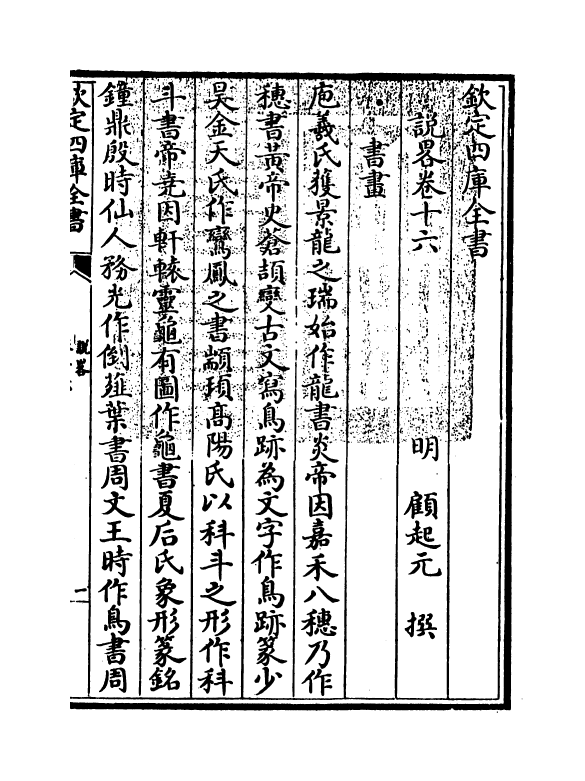 欽定四庫全書
說畧卷十六
明　顧起元　撰
書畫
庖羲氏獲景龍之瑞始作龍書炎帝因嘉禾八穗乃作
穗書黃帝史蒼頡變古文寫鳥跡為文字作鳥跡篆少
昊金天氏作鸞鳳之書顓頊高陽氏以科斗之形作科
斗書帝堯因軒轅靈龜有圖作龜書夏后氏象形篆銘
鐘鼎殷時仙人務光作倒薤葉書周文王時作鳥書周
欽定四庫全書
說畧
一